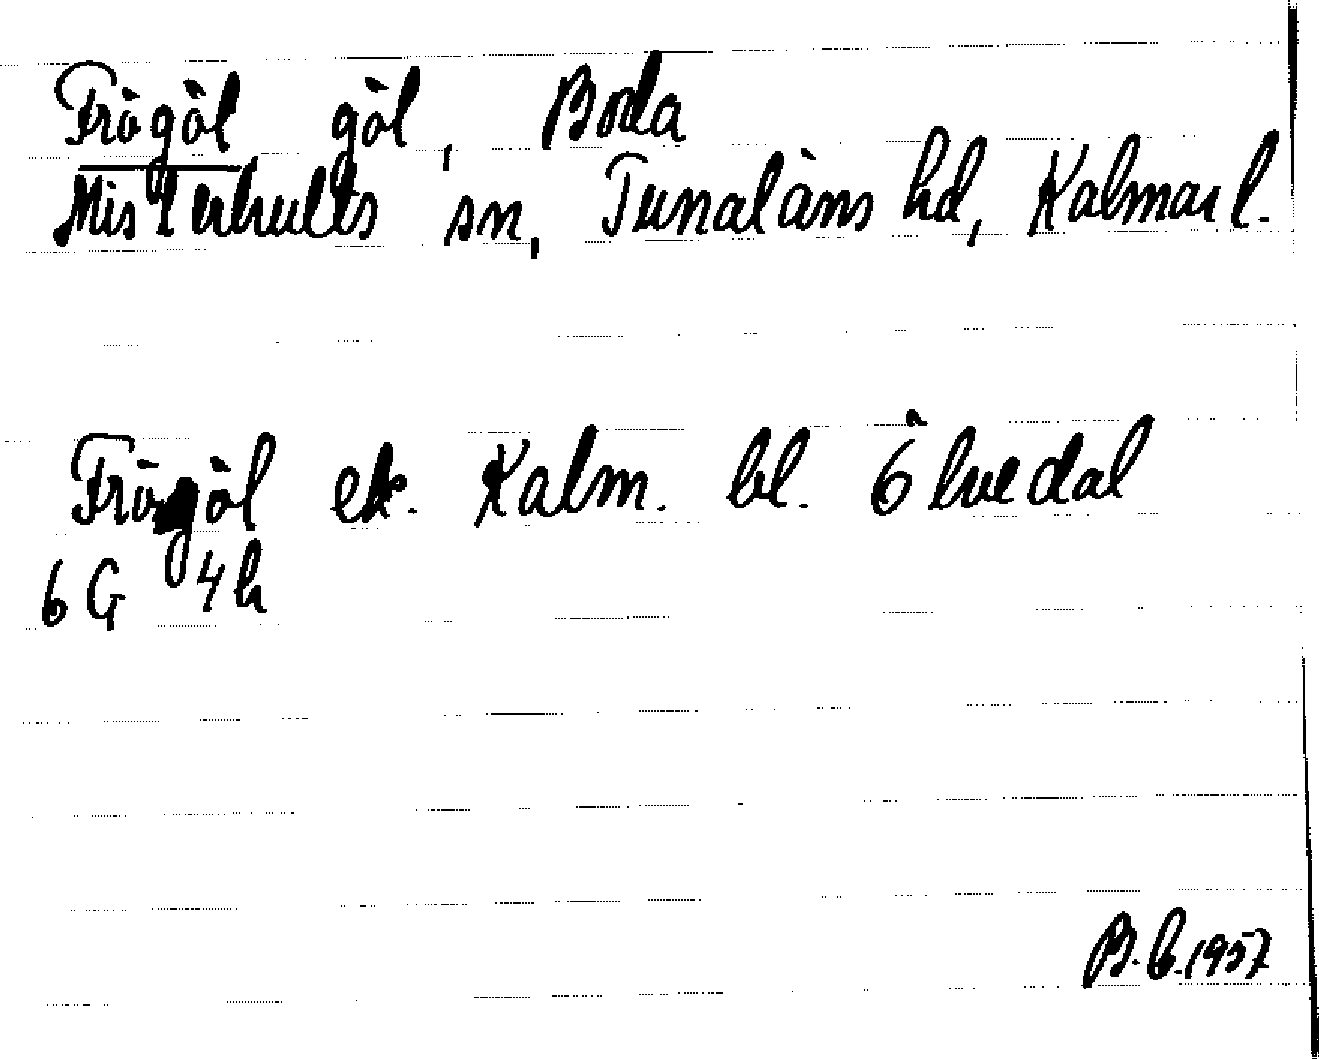 Frögöl göl, Boda
Misterhults sn, Tunaläns hd, Kalmar l.
Frögöl ek. Kalm. bl. Ölvedal
6G 4h
B.G. 1957